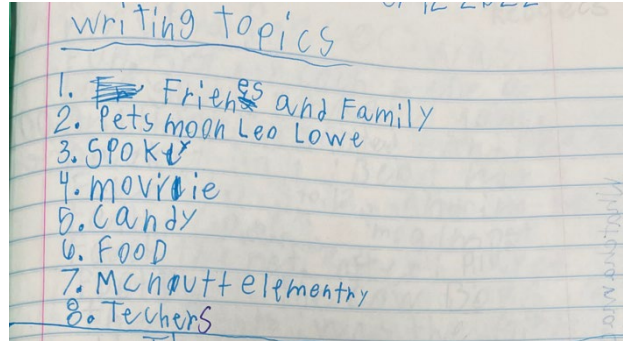 writing topics
1. Friends and Family
2. Pets moon Leo Lowe
3. SPOKY
4. movie
5. Candy
6. FOOD
7. MCnoutt elementry
8. Techers